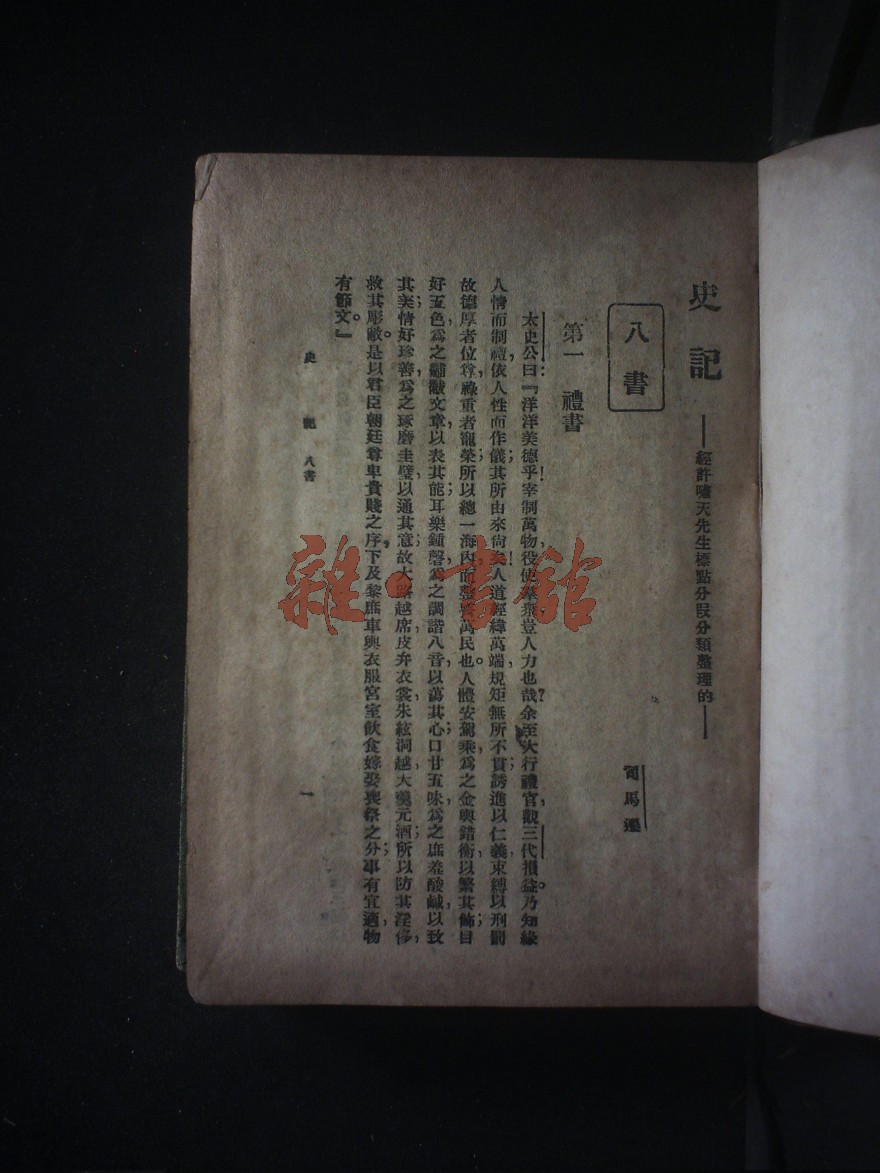 史記
——經許嘯天先生標點分段分類整理的——
司馬遷
八書
第一 禮書
太史公曰：『洋洋美德乎！宰制萬物，役使羣衆，豈人力也哉？余至大行禮官，觀三代損益。乃知緣
人情而制禮，依人性而作儀；其所由來尙矣！人道經緯萬端，規矩無所不貫；誘進以仁義，束縛以刑罰；
故德厚者位尊，祿重者寵榮；所以總一海內而整齊萬民也。人體安駕乘，爲之金輿錯衡以繁其飾；目
好五色，爲之黼黻文章以表其能；耳樂鍾磬，爲之調諧八音以蕩其心；口甘五味，爲之庶羞酸鹹以致
其美；情好珍善，爲之琢磨圭璧，以通其意；故大路越席，皮弁衣裳，朱絃洞越，大羹元酒；所以防其淫侈，
救其彫敝。是以君臣朝廷尊卑貴賤之序，下及黎庶車輿衣服宮室飮食嫁娶喪祭之分；事有宜適，物
有節文。』
史記 八書
一
雜·書館